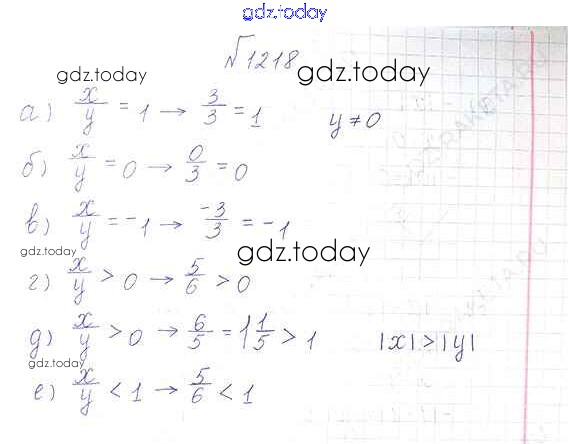 gdz.today
№1218
gdz.today gdz.today
а) x/y = 1 → 3/3 = 1 y ≠ 0
б) x/y = 0 → 0/3 = 0
в) x/y = -1 → -3/3 = -1
gdz.today gdz.today
г) x/y > 0 → 5/6 > 0
д) x/y > 0 → 6/5 = 1 1/5 > 1 |x| > |y|
gdz.today
е) x/y < 1 → 5/6 < 1